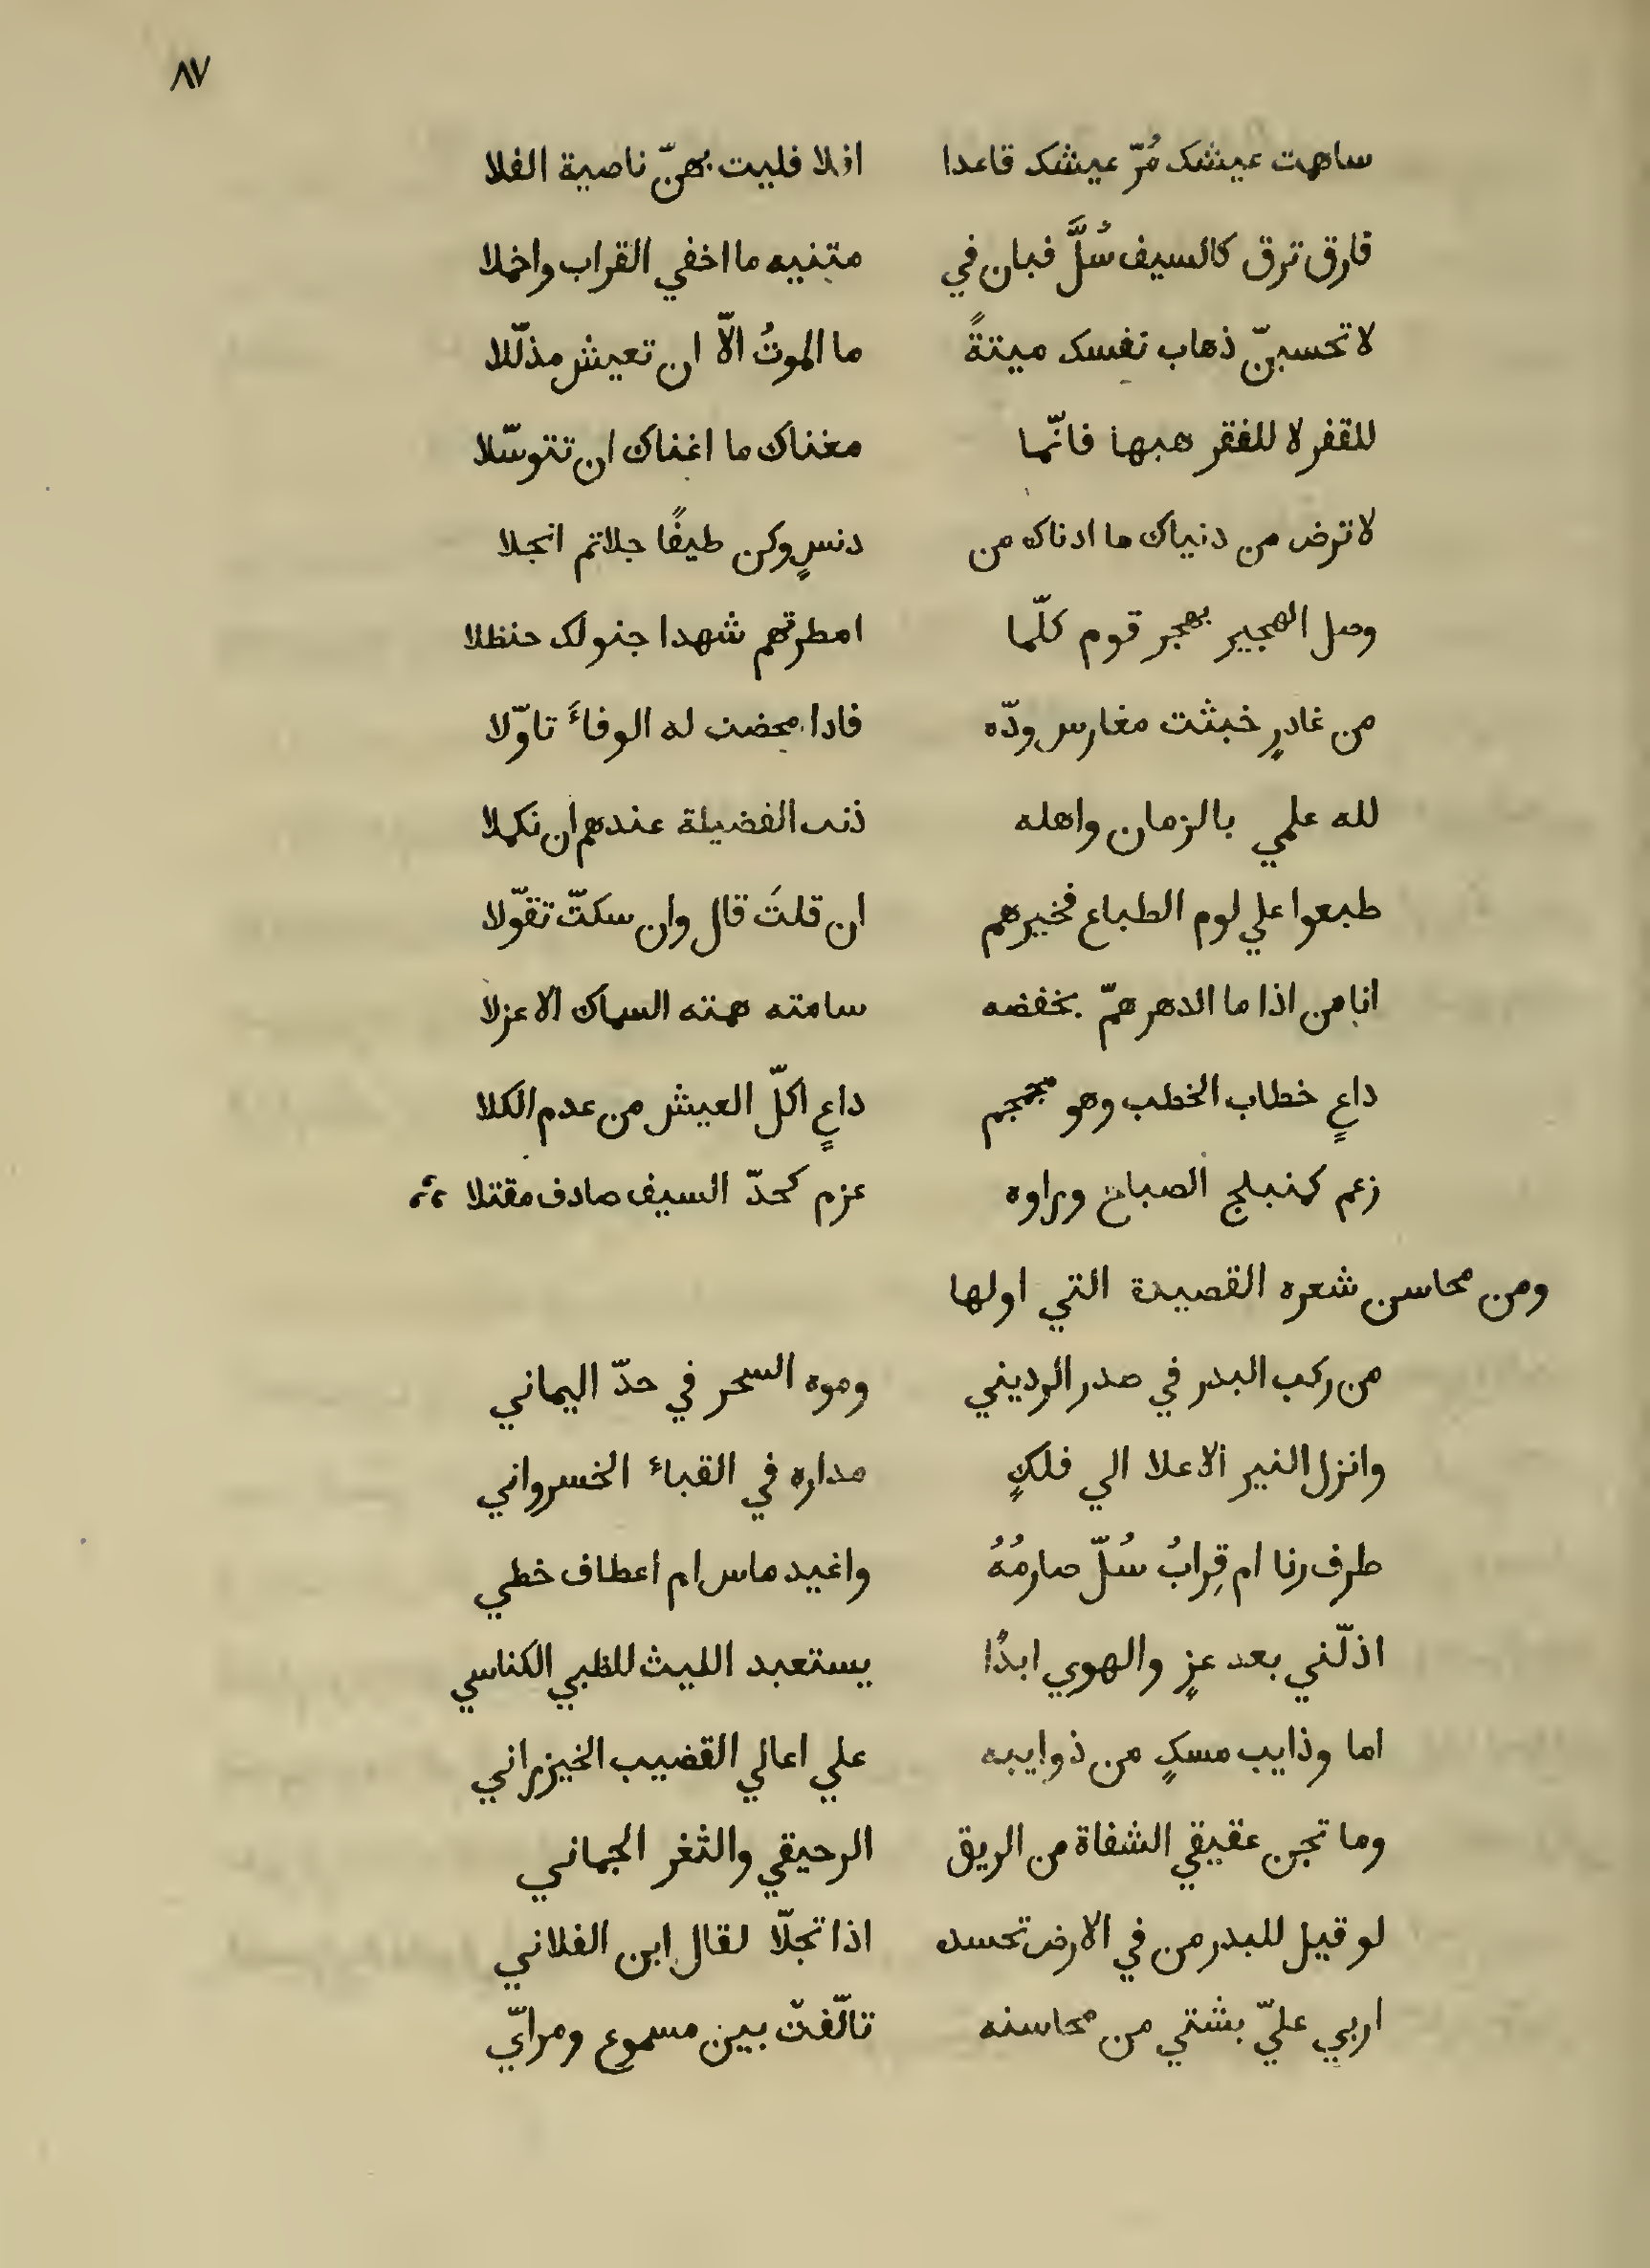 ٨٧
ساهمت عيشك مُرّ عيشك قاعدا افلا فليت بهنّ ناصية الفلا
فارق ترق كالسيف سُلَّ فبان في متنيه ما اخفي القراب واخملا
لا تحسبنّ ذهاب نفسك ميتةً ما الموتُ الّا ان تعيش مذلّلا
للقفر لا للفقر هبها فانّما مغناك ما اغناك ان تتوسّلا
لا ترض من دنياك ما ادناك من دنسٍ وكن طيفًا جلا ثم انجلا
وصل الهجير بهجر قوم كلّما امطرتهم شهدا جنو لك حنظلا
من غادرٍ خبثت مغارس ودّه فاذا محضت له الوفاءَ تاوّلا
لله علمي بالزمان واهله ذنب الفضيلة عندهم ان نكملا
طبعوا علي لوم الطباع فخيرهم ان قلتَ قال وان سكتّ تقوّلا
انا من اذا ما الدهر همّ بخفضه سامته همته السماك الاعزلا
داعٍ خطاب الخطب وهو مجمجم داعٍ اكلّ العيش من عدم الكلا
زعم كمنبلج الصباح وراوه عزم كحدّ السيف صادف مقتلا
ومن محاسن شعره القصيدة التي اولها
من ركب البدر في صدر الرديني وموه السحر في حدّ اليماني
وانزل النير الاعلا الي فلكٍ مداره في القباء الخسرواني
طرف رنا ام قِرابُ سُلّ صارمُهُ واغيد ماس ام اعطاف خطي
اذلّني بعد عزٍ والهوي ابدًا يستعبد الليث للظبي الكناسي
اما وذايب مسكٍ من ذوايبه علي اعالي القضيب الخيزراني
وما تجن عقيقي الشفاة من الريق الرحيقي والثغر الجماني
لو قيل للبدر من في الارض تحسد اذا تجلّا لقال ابن الفلاني
اربي عليّ بشتي من محاسنه تالّفتّ بين مسموع ومرايّ